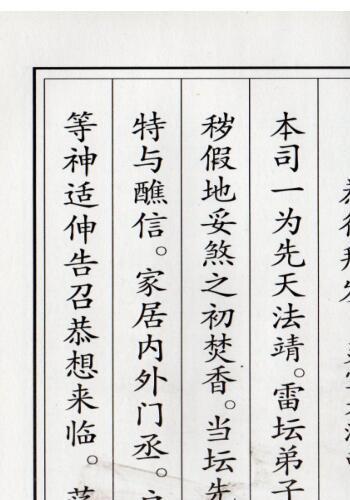 本司一为先天法靖。雷坛弟子
秽假地妥煞之初焚香。当坛先
特与醮信。家居内外门丞。户
等神适伸告召恭想来临。